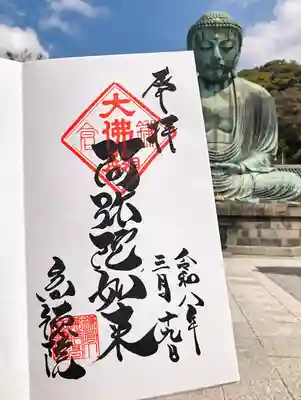 奉拝
大佛
阿弥陀如来
令和八年
三月十九日
高徳院